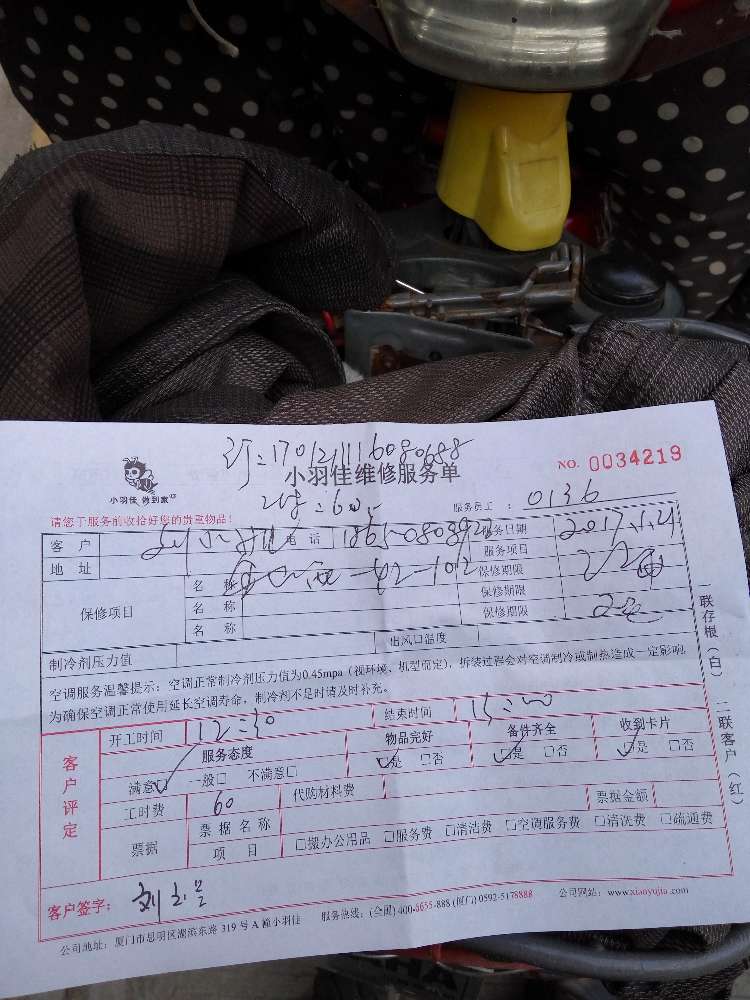 小羽佳 做到家
小羽佳维修服务单
NO. 0034219
请您于服务前收拾好您的贵重物品!
服务员工 : 0136
客 户
电 话
服务日期
地 址
服务项目
保修项目
名 称
保修期限
名 称
保修期限
名 称
保修期限
制冷剂压力值
出风口温度
空调服务温馨提示:空调正常制冷剂压力值为0.45mpa(视环境、机型而定),拆装过程会对空调制冷或制热造成一定影响
为确保空调正常使用延长空调寿命,制冷剂不足时请及时补充。
客户评定
开工时间 12:30
结束时间 15:00
服务态度 物品完好 备件齐全 收到卡片
满意 一般□ 不满意□ 是 □否 是 □否 是 □否
工时费 60 代购材料费 票据金额
票据 票 据 名 称
项 目 □搬办公用品 □服务费 □清洁费 □空调服务费 □清洗费 □疏通费
客户签字:
服务热线:(全国) 400-6655-888 (厦门) 0592-5178888 公司网站:www.xiaoyujia.com
公司地址:厦门市思明区湖滨东路 319 号 A 幢小羽佳
一联存根(白)
二联客户(红)